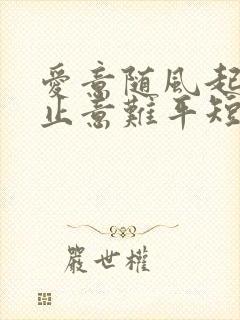 愛意随風起
止意難平短
嚴世權